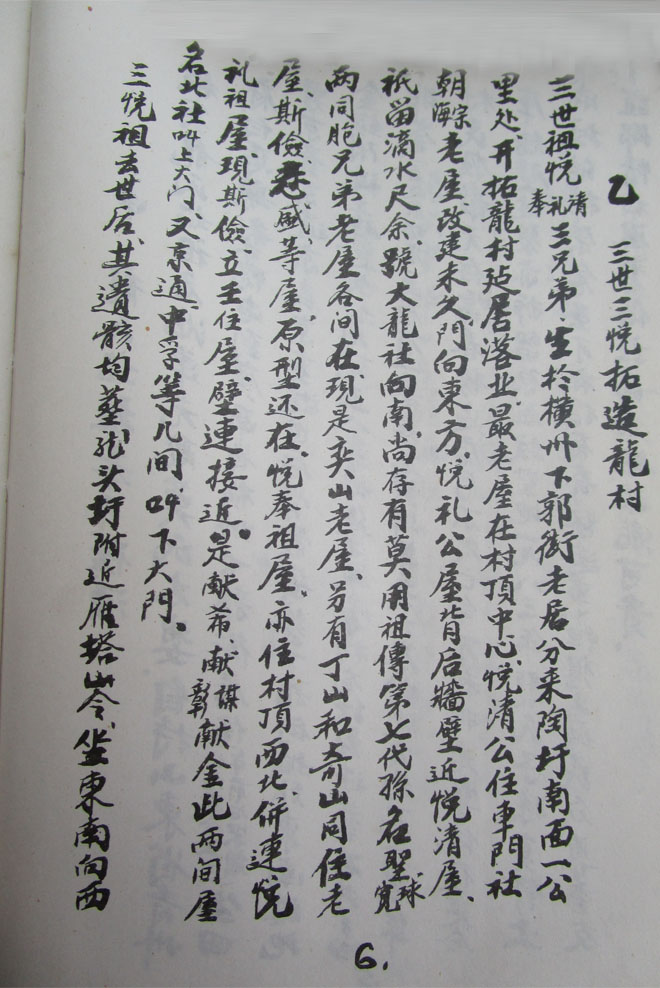 乙　三世三悦拓造龍村
三世祖悦清礼奉三兄弟、生於橫州下郭街老居分来陶圩南面一公
里处、开拓龍村延居落业、最老屋在村頂中心、悦清公住車門社
朝宗海老屋、改建未久、門向東方、悦礼公屋背后牆壁近悦清屋、
祇畄滴水尺余、號大龍社向南、尚存有莫用祖傳第七代孫名聖球寬
两同胞兄弟老屋各间在、現是奕山老屋、另有丁山和奇山同住老
屋、斯儉、盛等屋、原型还在、悦奉祖屋、亦住村頂西北、併連悦
礼祖屋、現斯儉、立壬住屋、壁連接近、是献希、献謀彰献金此两间屋
名北社叫上大门、又京通、中孚等几间叫下大門、
三悦祖去世后、其遺骸均葬龙头圩附近雁塔山今、坐東南向西
6.